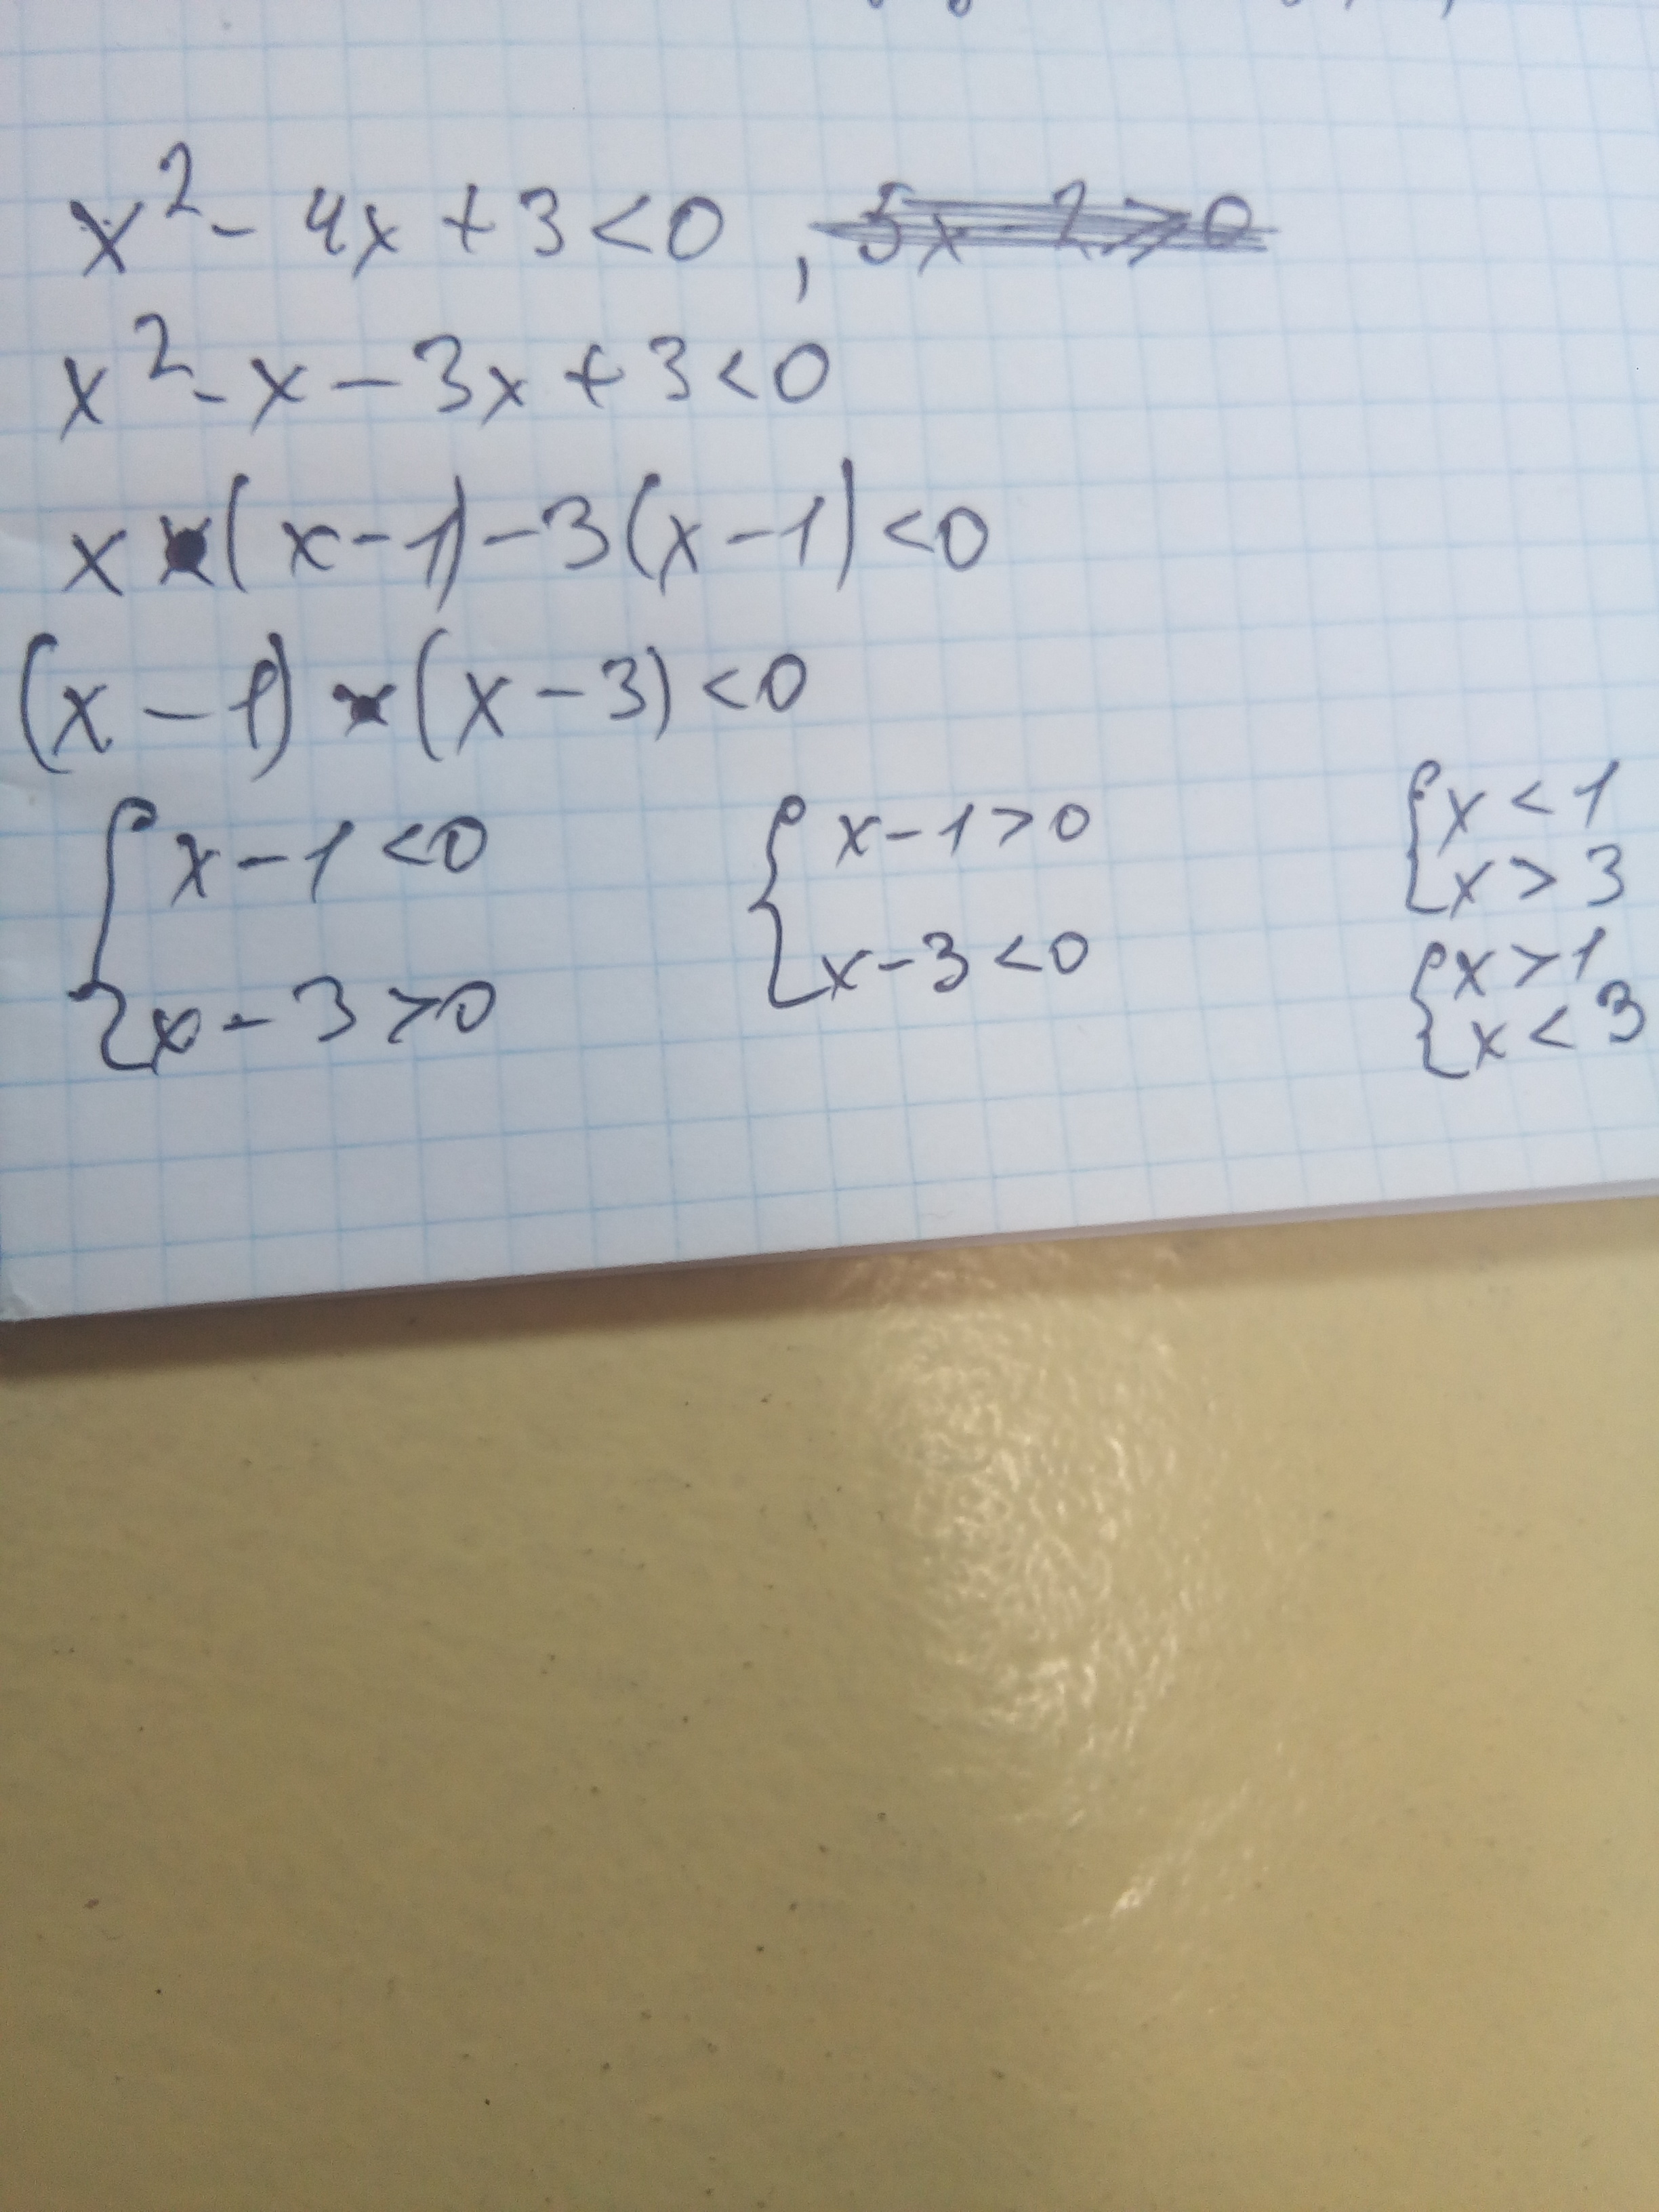 x² - 4x + 3 < 0 , 5x - 2 > 0
x² - x - 3x + 3 < 0
x (x - 1) - 3 (x - 1) < 0
(x - 1) (x - 3) < 0
{ x - 1 < 0
x - 3 > 0
{ x - 1 > 0
x - 3 < 0
{ x < 1
x > 3
{ x > 1
x < 3